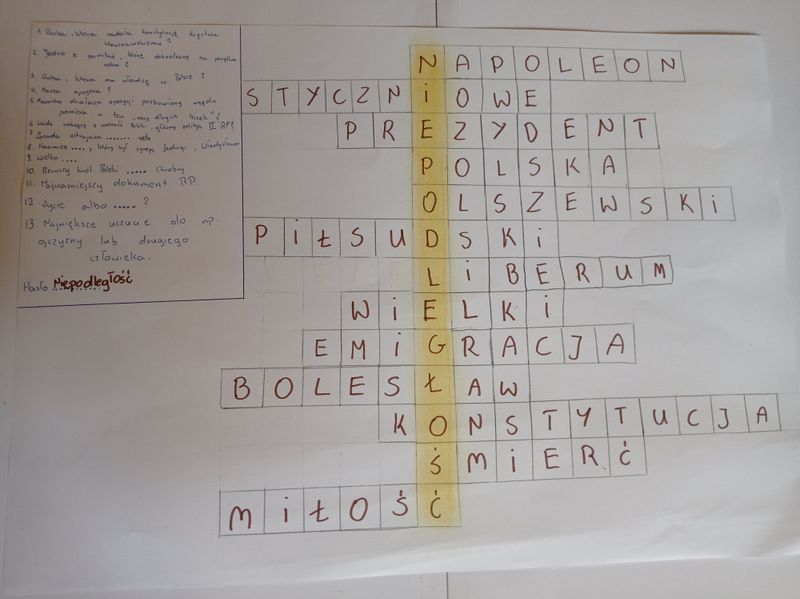 1. Osoba, która nadała konstytucję Księstwu
Warszawskiemu?
2. Jedno z powstań, które
roku?
3. Osoba, która ma władzę w Polsce?
4. Nasza ojczyzna?
5.
premiera w tzw. "nocy długich teczek"?
6. główny polityk II RP?
7. Zasada ustrojowa ....... veto
8. Kazimierz ...., który był synem Jadwigi i Władysława
9. Wielka ....
10. Pierwszy król Polski ..... Chrobry
11. Najważniejszy dokument RP.
12. Życie albo ..... ?
13. Największe uczucie do np.
ojczyzny lub drugiego
człowieka.
Hasło Niepodległość
NAPOLEON
STYCZNIOWE
PREZYDENT
POLSKA
OLSZEWSKI
PIŁSUDSKI
LIBERUM
WIELKI
EMIGRACJA
BOLESŁAW
KONSTYTUCJA
ŚMIERĆ
MIŁOŚĆ